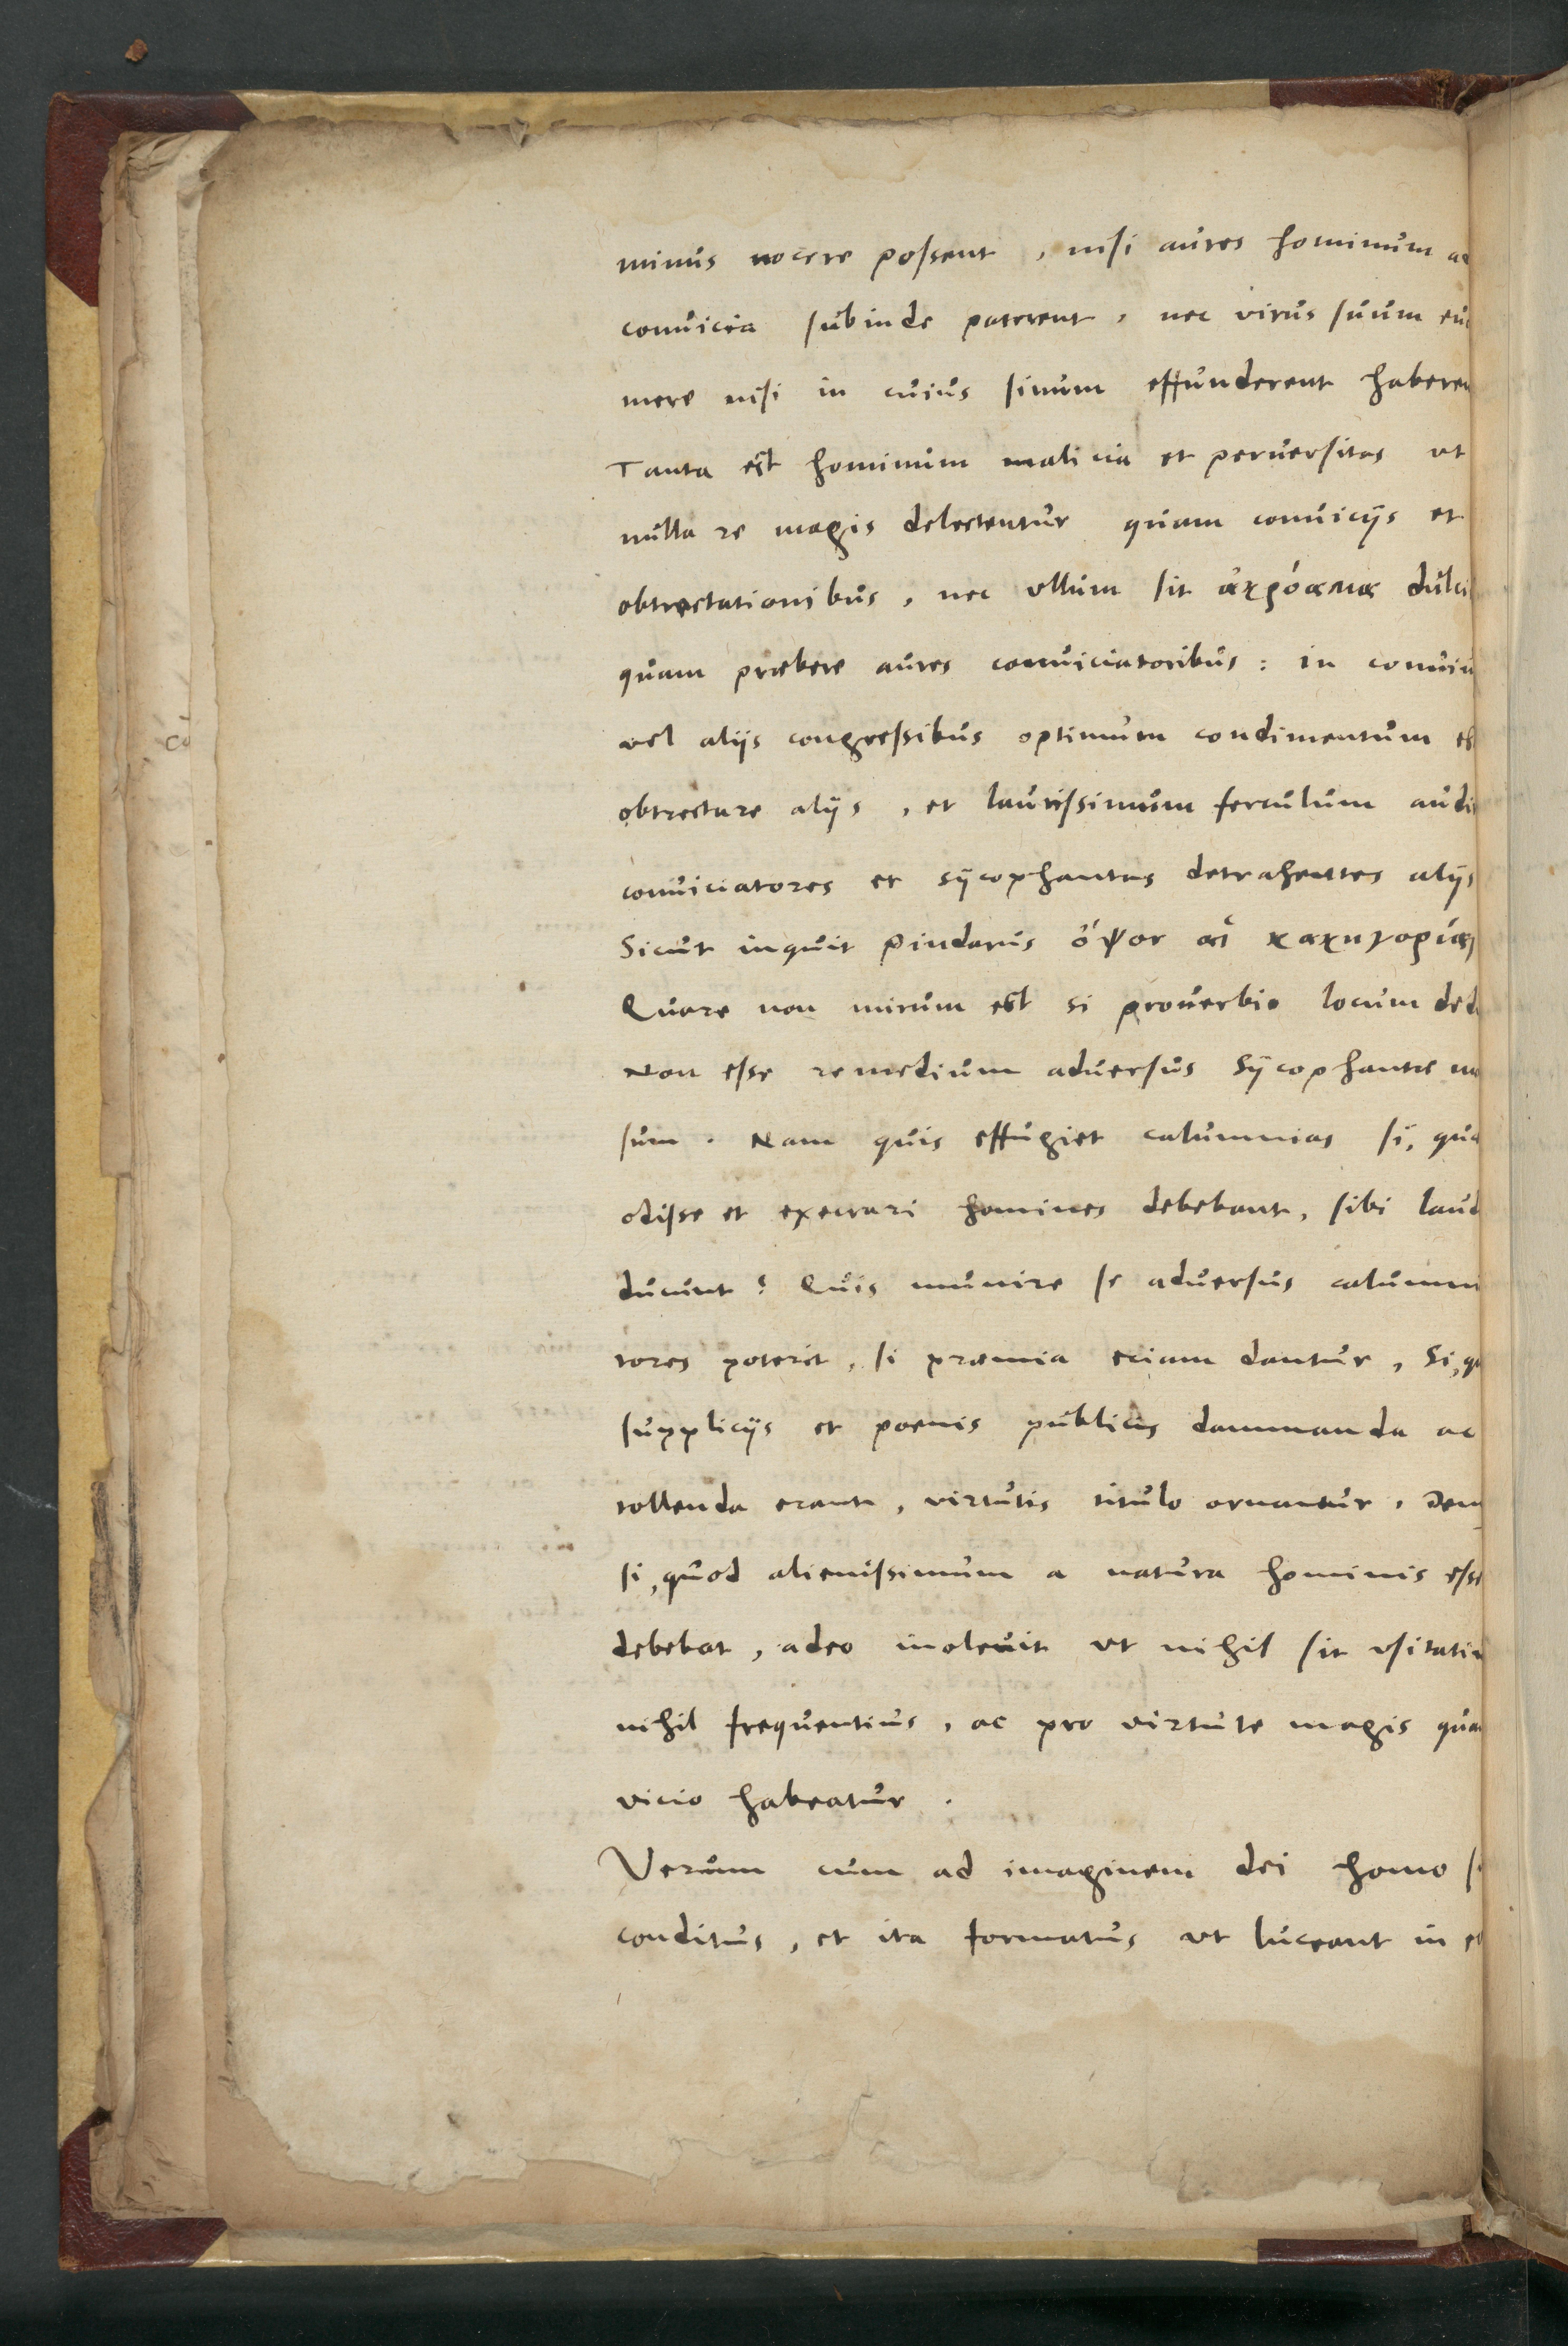 minus nocere possent, nisi aures hominum
convicia subinde paterent, nec virus suum
mere nisi in cuius sinum effunderent
Tanta est hominum malicia et perversitas ut
nulla re magis delectentur quam conviciis et
obtrectationibus, nec ullum sit ἀκρόαμα
quam praebere aures conviciatoribus: in
vel aliis congressibus optimum condimentum
obtrectare aliis, et lautissimum ferculum
conviciatores et sycophantas detrahentes aliis
Sicut inquit Pindarus ὄψον αἱ κακηγορίαι
Quare non mirum est si proverbio locum
Non esse remedium adversus Sycophantae
sum. Nam quis effugiet calumnias si,
odisse et execrari homines debebant, sibi
ducunt? Quis munire se adversus
tores poterit, si praemia eciam dantur, Si,
suppliciis et poenis publicis damnanda ac
tollenda erant, virtutis titulo ornantur,
si, quod alienissimum a natura hominis
debebat, adeo inolevit ut nihil sit
nihil frequentius, ac pro virtute magis
vicio habeatur.
Verum cum ad imaginem dei homo
conditus, et ita formatus ut luceant in